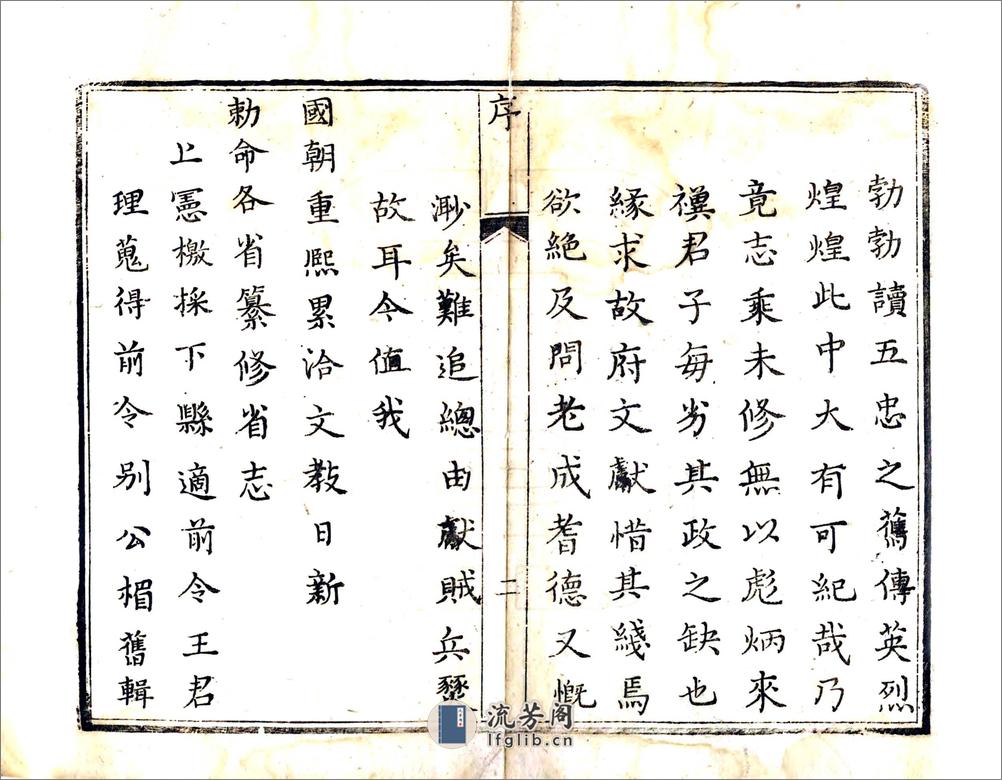 勃勃讀五忠之舊傳英烈
煌煌此中大有可紀哉乃
竟志乘未修無以彪炳來
禩君子每勞其政之缺也
緣求故府文獻惜其綫焉
欲絕及問老成耆德又慨
序
二
渺矣難追總由獻賊兵燹
故耳今值我
國朝重熙累洽文教日新
勅命各省纂修省志
上憲檄採下縣適前令王君
理蒐得前令别公楣舊輯
流芳阁
lfglib.cn